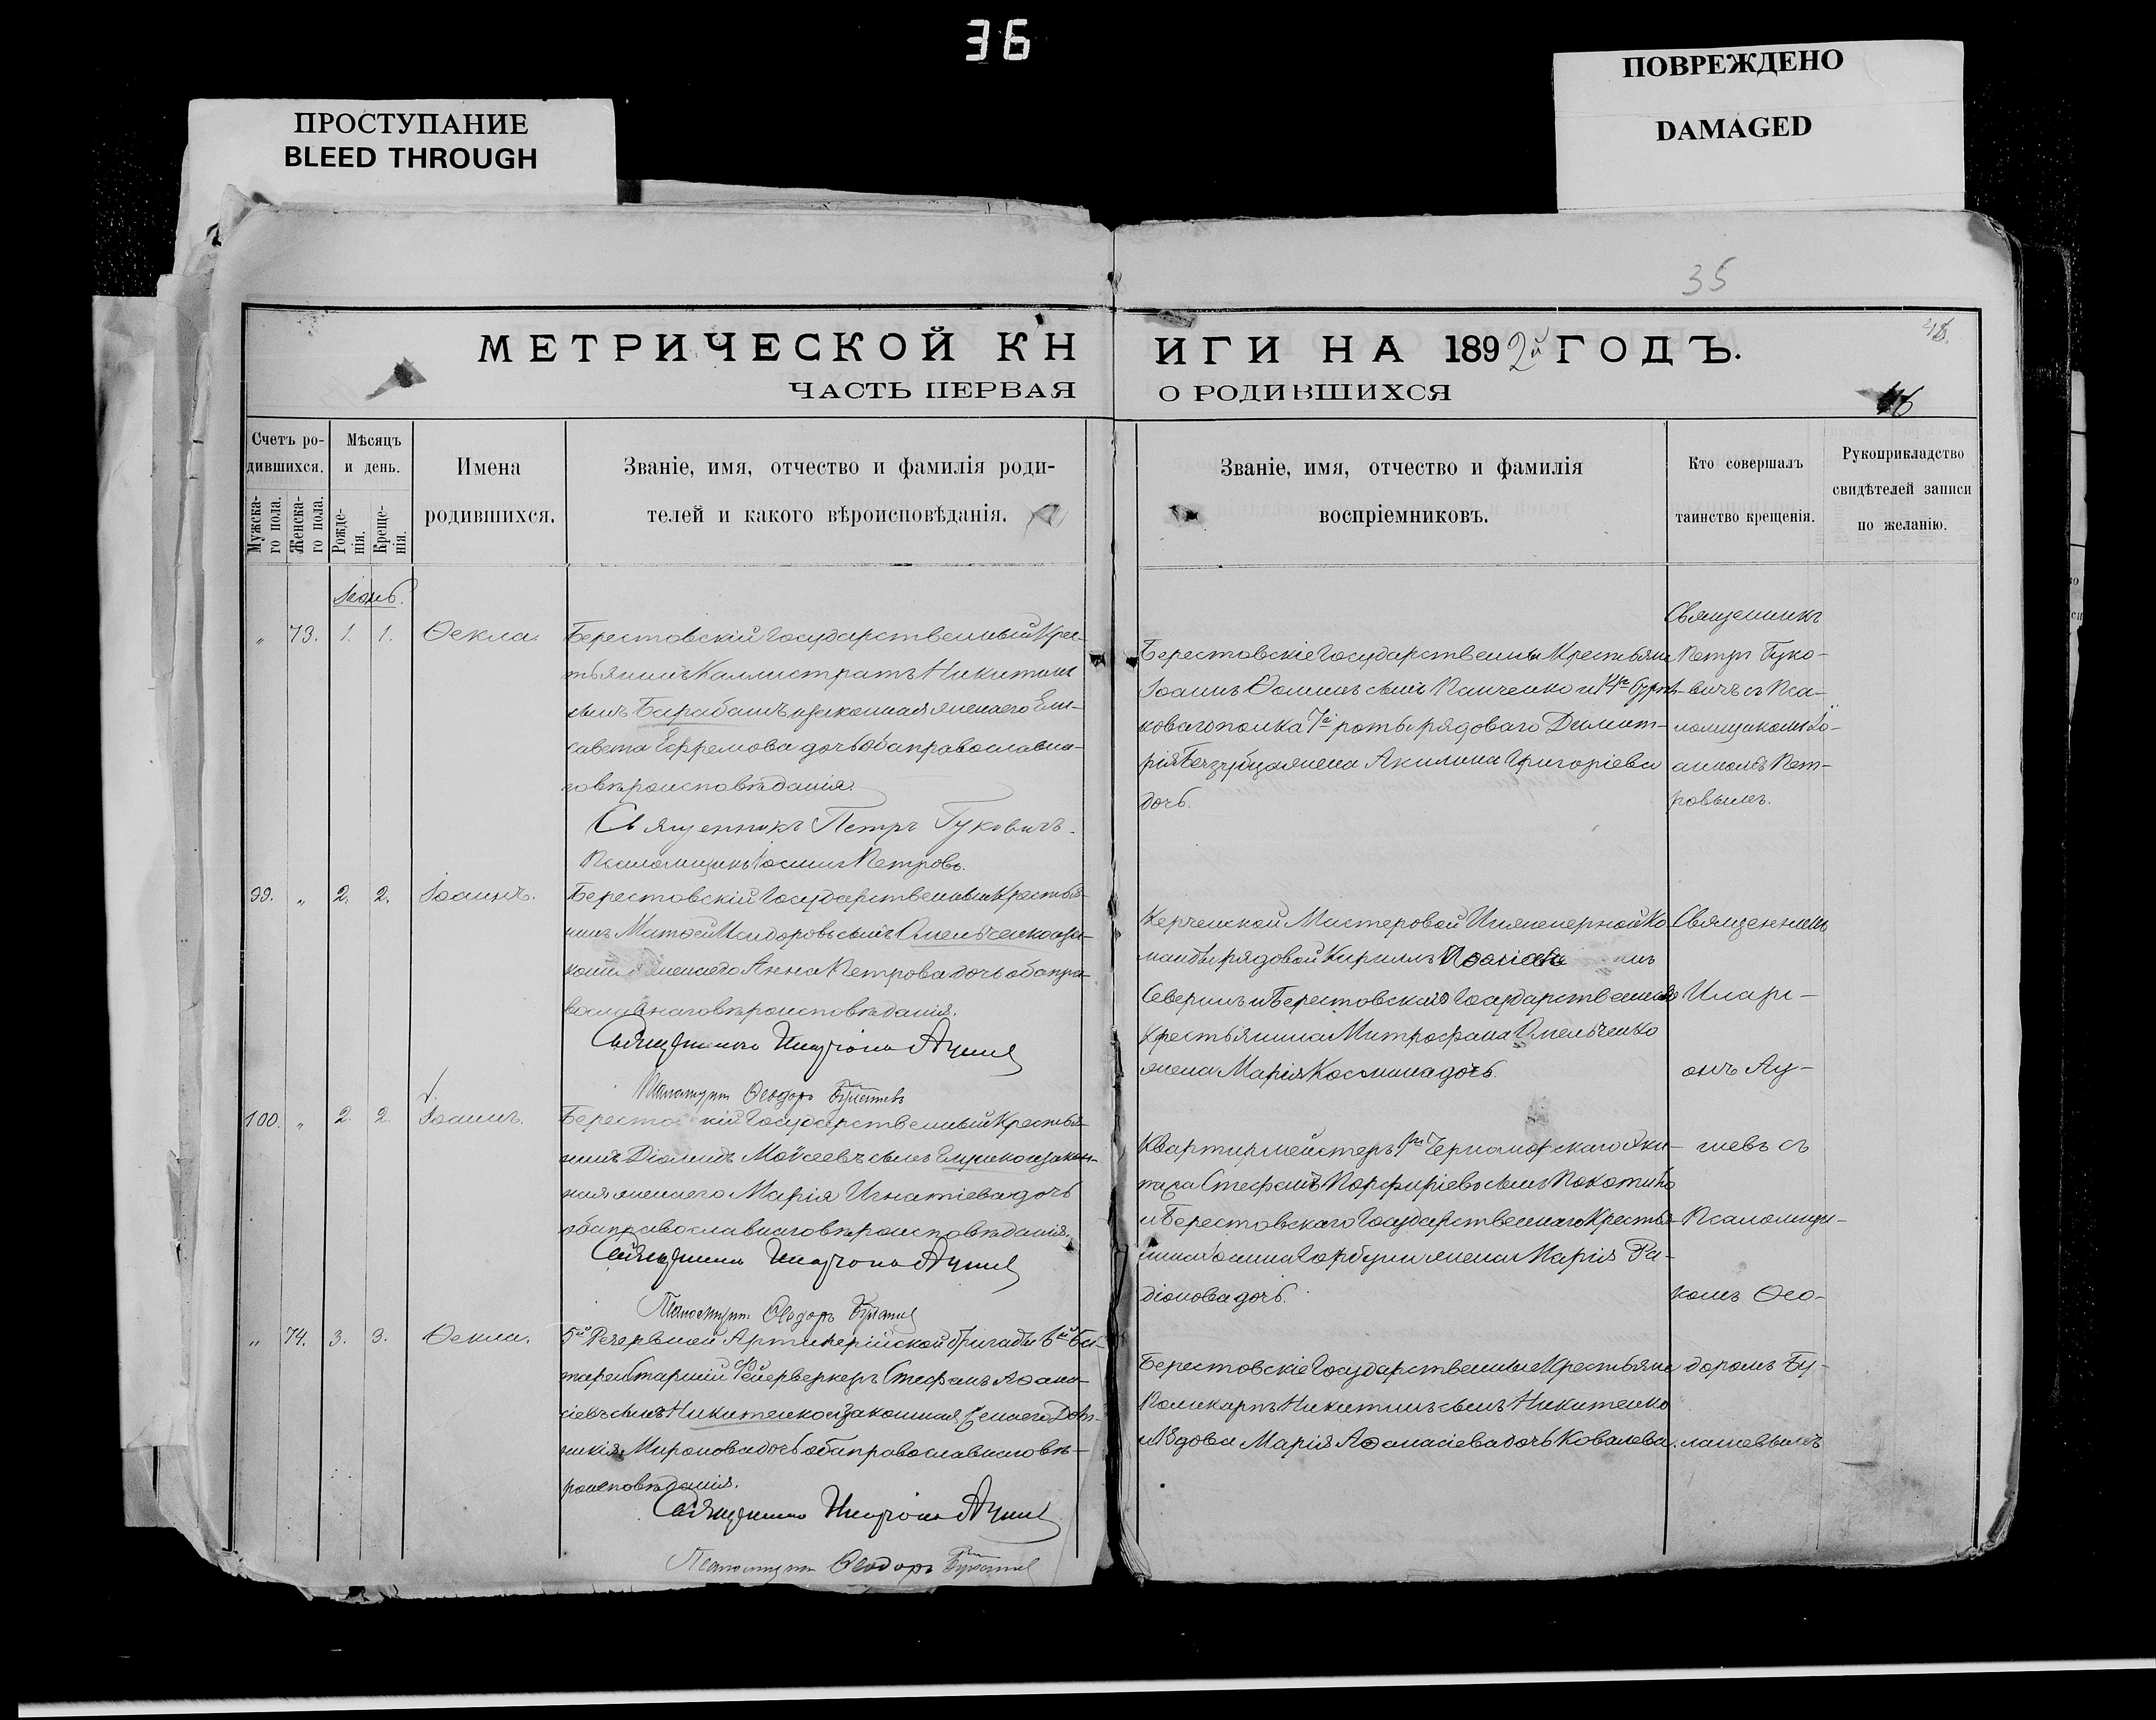 36
ПРОСТУПАНИЕ
BLEED THROUGH
ПОВРЕЖДЕНО
DAMAGED
35
МЕТРИЧЕСКОЙ КНИГИ НА 1892й ГОДЪ.
ЧАСТЬ ПЕРВАЯ О РОДИВШИХСЯ
46
Счетъ родившихся.
Мужскаго пола.
Женскаго пола.
Мѣсяцъ и день.
Рожденія.
Крещенія.
Имена
родившихся.
Званіе, имя, отчество и фамилія роди-
телей и какого вѣроисповѣданія.
Званіе, имя, отчество и фамилія
воспріемниковъ.
Кто совершалъ
таинство крещенія.
Рукоприкладство
свидѣтелей записи
по желанію.
Іюнь.
" 73. 1. 1. Ѳекла.
Берестовскій Государственный Крес-
тьянинъ Каллистратъ Никитинъ
сынъ Барабашъ изаконная женаего Ели-
савета Ефремова дочь оба православна-
го вѣроисповѣданія.
Священникъ Петръ Гуковичъ.
Псаломщикъ Іоаннъ Петровъ.
Берестовскіе Государственные Крестьяне
Іоаннъ Ѳоминъ сынъ Панченко и
коваго полка 7й роты рядоваго Димит-
рія жена Акилина Григоріева
дочь.
Священникъ
Петръ Гуко-
вичъ съ Пса-
ломщикомъ Іо-
анномъ Пет-
ровымъ.
99. " 2. 2. Іоаннъ.
Берестовскій Государственный Крестья-
нинъ Матѳей Исидоровъ сынъ Омельченко иза-
конная женаего Анна Петрова дочь оба пра-
вославнаго вѣроисповѣданія.
Священникъ Иларіонъ
Псаломщикъ Ѳеодоръ
Керченской Мастеровой Инженерной Ко-
манды рядовой Кириллъ
Северинъ и Берестовскаго Государственнаго
крестьянина Митрофана Омельченко
жена Марія Космина дочь.
Священникъ
Илари-
онъ Лу-
100. " 2. 2. Іоаннъ.
Берестовскій Государственный Крестья-
нинъ Діомидъ Моѵсеевъ сынъ изакон-
ная женаего Марія Игнатіева дочь
оба православнаго вѣроисповѣданія.
Священникъ Иларіонъ
Псаломщикъ Ѳеодоръ
Квартирмейстеръ Черноморскаго Эки-
пажа Стефанъ Порфиріевъ сынъ Покотило
и Берестовскаго Государственнаго Крестья-
нина Іоанна Горбуни жена Марія Ра-
діонова дочь.
съ
Псаломщи-
комъ Ѳео-
" 74. 3. 3. Ѳекла.
5й Резервной Артилерійской бригады 6й Ба-
тареи Старшій Фейерверкеръ Стефанъ Аѳана-
сіевъ сынъ Никитенко изаконная женаего Дом-
никія Миронова дочь оба православнаго вѣ-
роисповѣданія.
Священникъ Иларіонъ
Псаломщикъ Ѳеодоръ
Берестовскіе Государственные Крестьяне
Поликарпъ Никитинъ сынъ Никитенко
и Вдова Марія Аѳанасіева дочь Ковалева.
доромъ Бу-